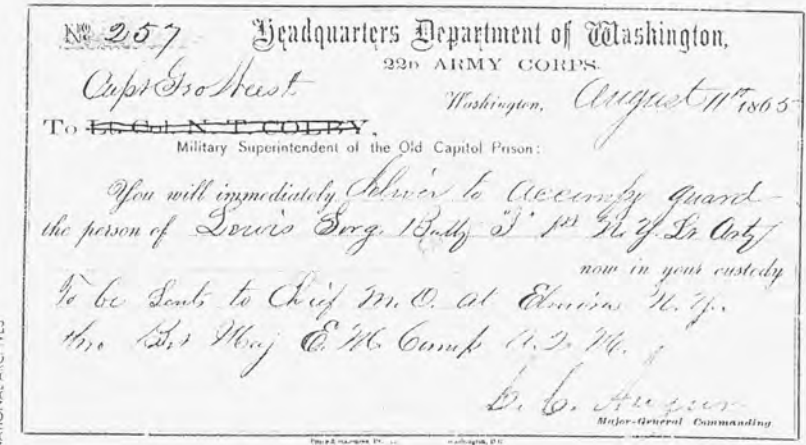 No 257 Headquarters Department of Washington,
22D ARMY CORPS.
Capt Geo
Washington, August 11th 1865
To Lt. Col. N. T. COLBY,
Military Superintendent of the Old Capitol Prison:
You will immediately deliver to accompy guard
the person of Lewis Sorg. Batty "I" 1st N.Y. Lt Arty
now in your custody
To be sent to Chief M.O. at Elmira N.Y.
thro Bvt Maj E. M. Camp A.Q.M.
C. C. Augur
Major-General Commanding
NATIONAL ARCHIVES